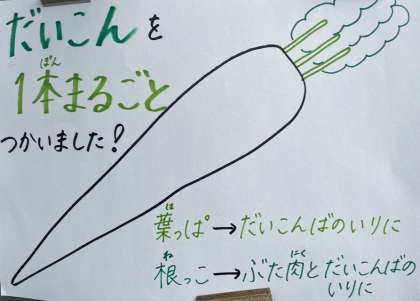 だいこんを
1本まるごと
つかいました!
葉っぱ→だいこんばのいりに
根っこ→ぶた肉とだいこんばの
いりに